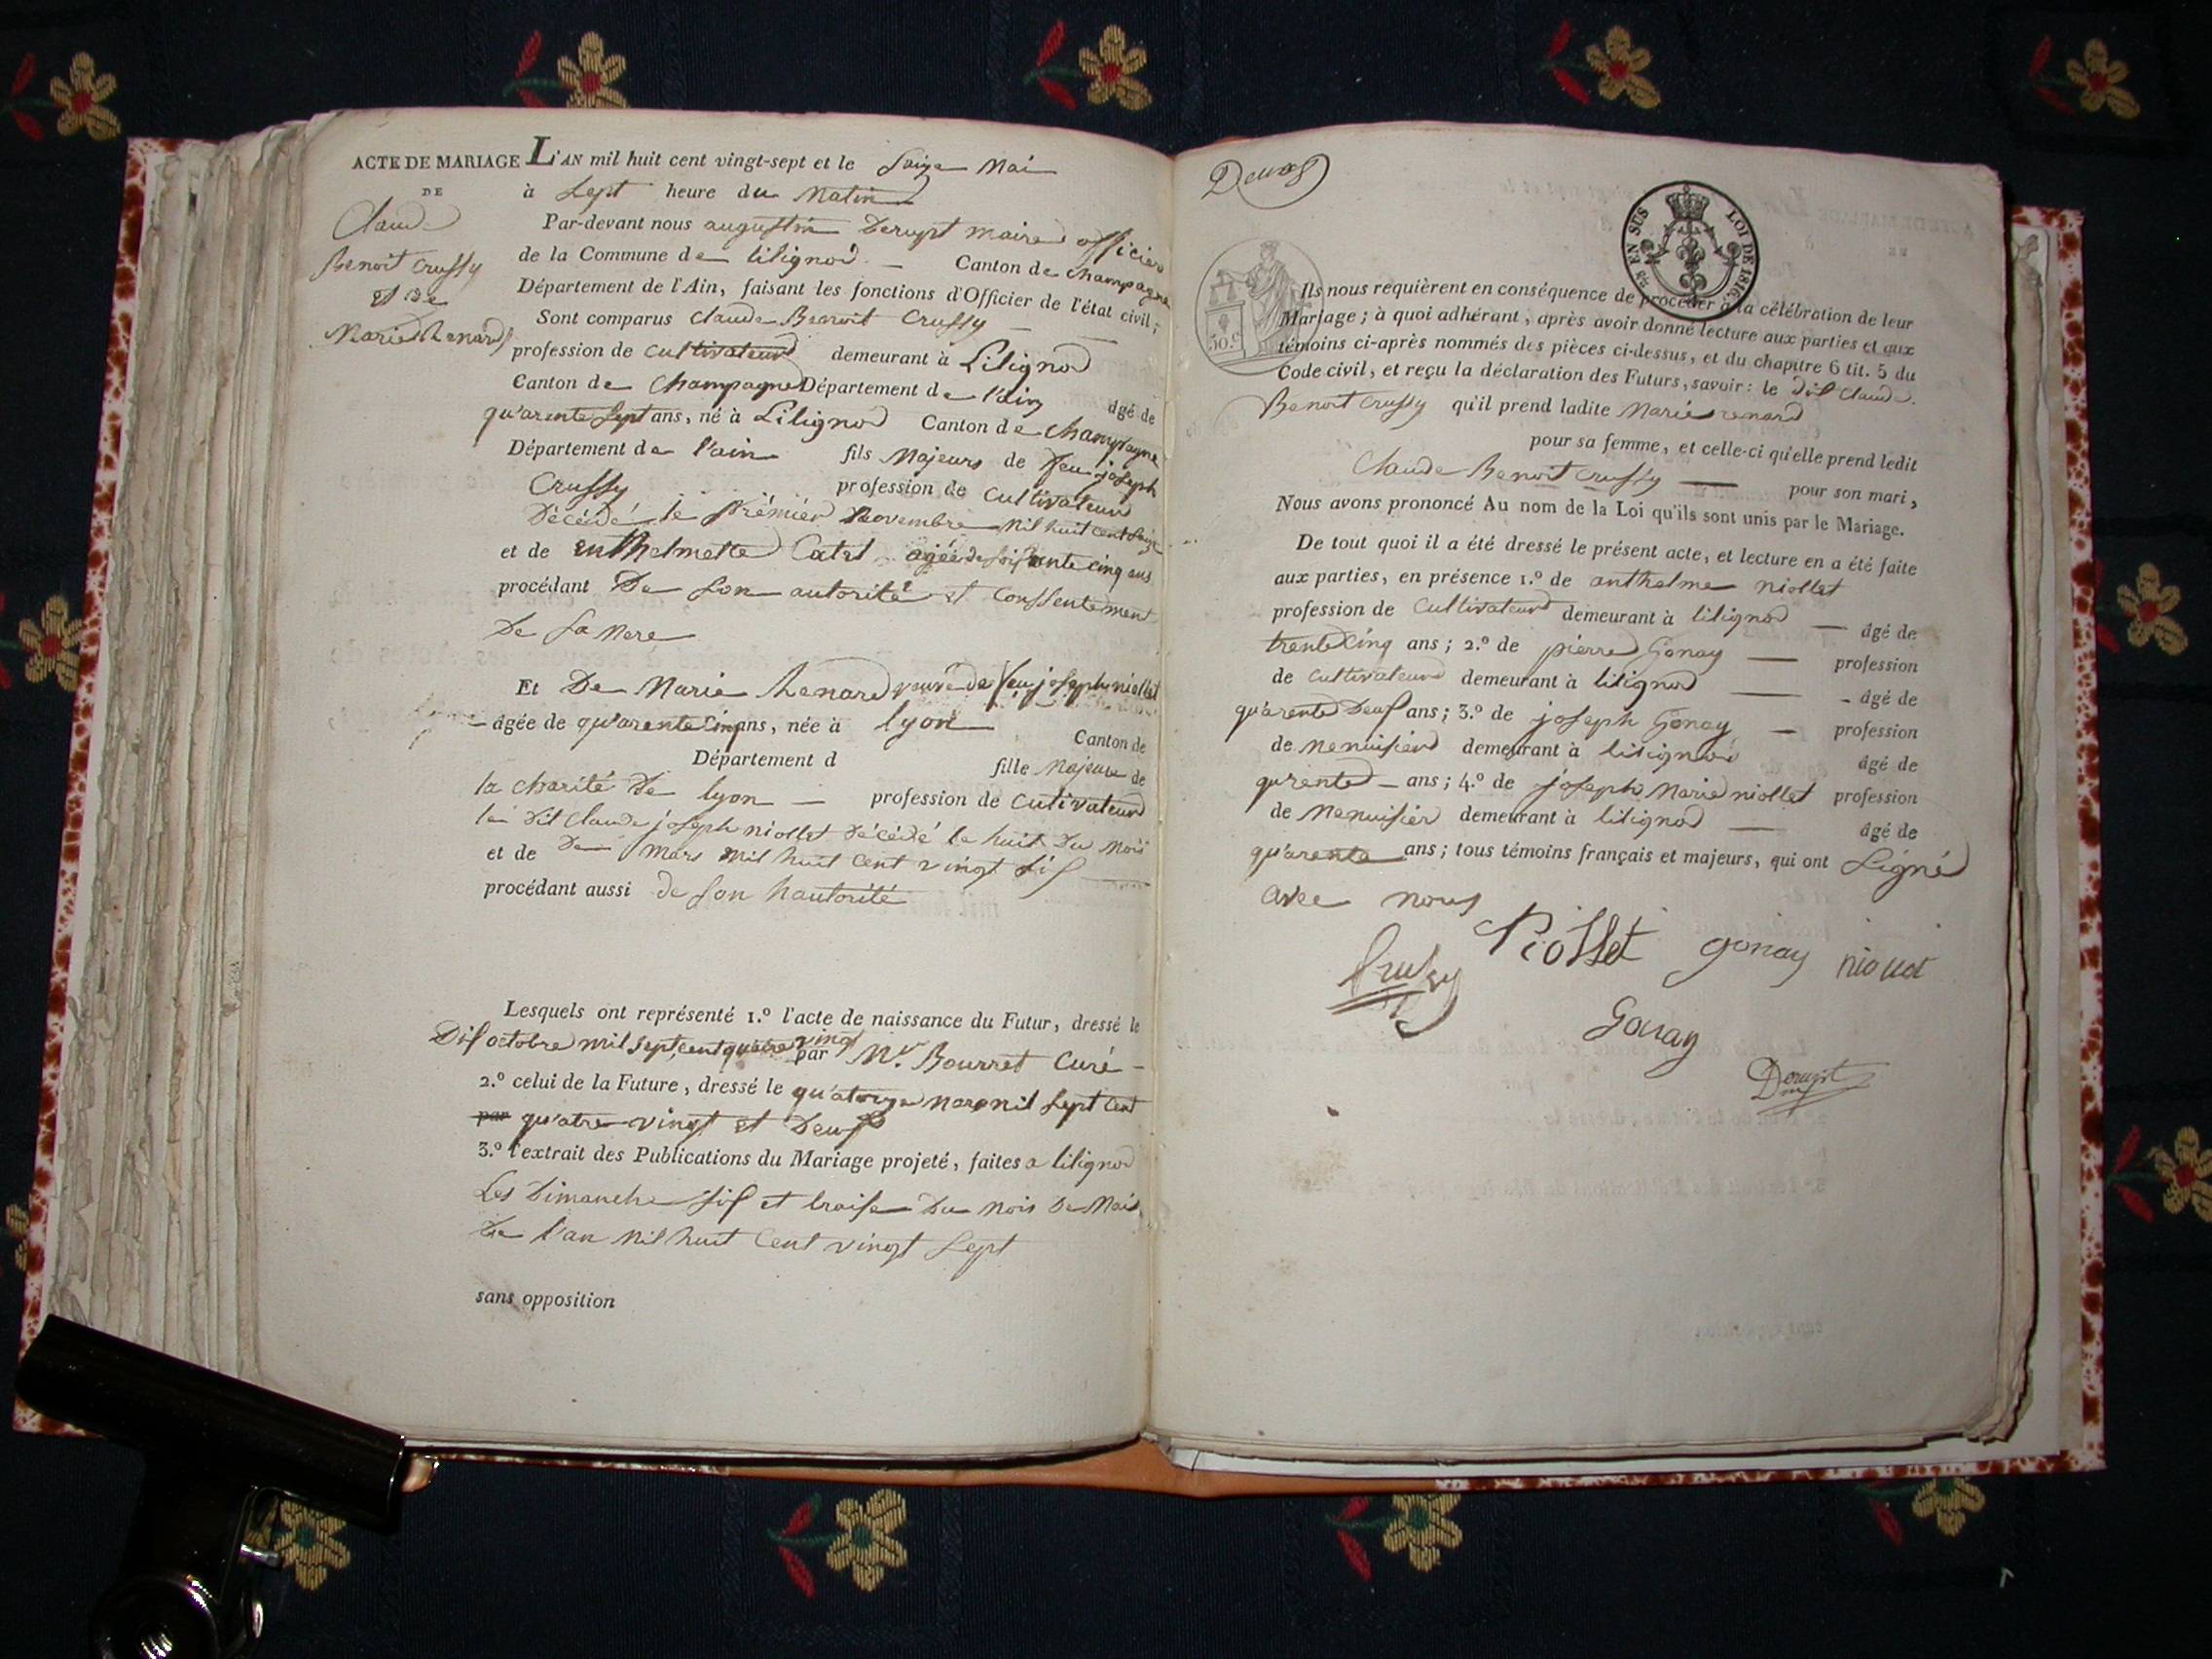 ACTE DE MARIAGE
DE
Claude
Benoit Crussy
et de
Marie Renard
L'AN mil huit cent vingt-sept et le Saize Mai
à Sept heure du Matin
Par-devant nous augustin Derupt maire officier
de la Commune de lilignod Canton de Champagne
Département de l'Ain, faisant les fonctions d'Officier de l'état civil;
Sont comparus Claude Benoit Crussy
profession de Cultivateur demeurant à Lilignod
Canton de Champagne Département de l'ain âgé de
qu'arente Sept ans, né à Lilignod Canton de Champagne
Département de l'ain fils Majeurs de feu joseph
Crussy profession de Cultivateur
Décédé le prémier Novembre Mil huit Cent Saize
et de enthelmette Catel agée de soissante cinq ans
procédant De Son autorité et Conssentement
De Sa Mere
Et De Marie Renard veuve de feu joseph niollet
âgée de qu'arente Cinq ans, née à lyon Canton de
Département d fille Majeure de
la Charité De lyon profession de Cutivateur
le Dit Claude joseph niollet Décédé le huit Du Mois
et de De Mars Mil huit Cent vingt Sis
procédant aussi de Son hautorité
Lesquels ont représenté 1.º l'acte de naissance du Futur, dressé le
Dis octobre Mil Sept Cent quatre vingt par Mr. Bourret Curé
2.º celui de la Future, dressé le qu'atorze Mars Mil Sept Cent
par qu'atre-vingt et Deuss
3.º l'extrait des Publications du Mariage projeté, faites a lilignod
Les Dimanche Sis et traise Du Mois De Mai
De l'an Mil huit Cent vingt Sept
sans opposition
Deuxs
25 EN SUS LOI DE 1816.
50.c
Ils nous requièrent en conséquence de procéder à la célébration de leur
Mariage; à quoi adhérant, après avoir donné lecture aux parties et aux
témoins ci-après nommés des pièces ci-dessus, et du chapitre 6 tit. 5 du
Code civil, et reçu la déclaration des Futurs, savoir: le Dit Claude
Benoit Crussy qu'il prend ladite Marie renard
pour sa femme, et celle-ci qu'elle prend ledit
Claude Benoit Crussy pour son mari,
Nous avons prononcé Au nom de la Loi qu'ils sont unis par le Mariage.
De tout quoi il a été dressé le présent acte, et lecture en a été faite
aux parties, en présence 1.º de anthelme niollet
profession de Cultivateur demeurant à lilignod âgé de
trente Cinq ans; 2.º de pierre Gonay profession
de Cultivateur demeurant à lilignod âgé de
qu'arente Deus ans; 3.º de joseph Gonay profession
de Menuisier demeurant à lilignod âgé de
qurente ans; 4.º de joseph Marie niollet profession
de Menuisier demeurant à lilignod âgé de
qu'arente ans; tous témoins français et majeurs, qui ont Signé
avec nous
Crussy Niollet gonay niollet
Gonay
Derupt